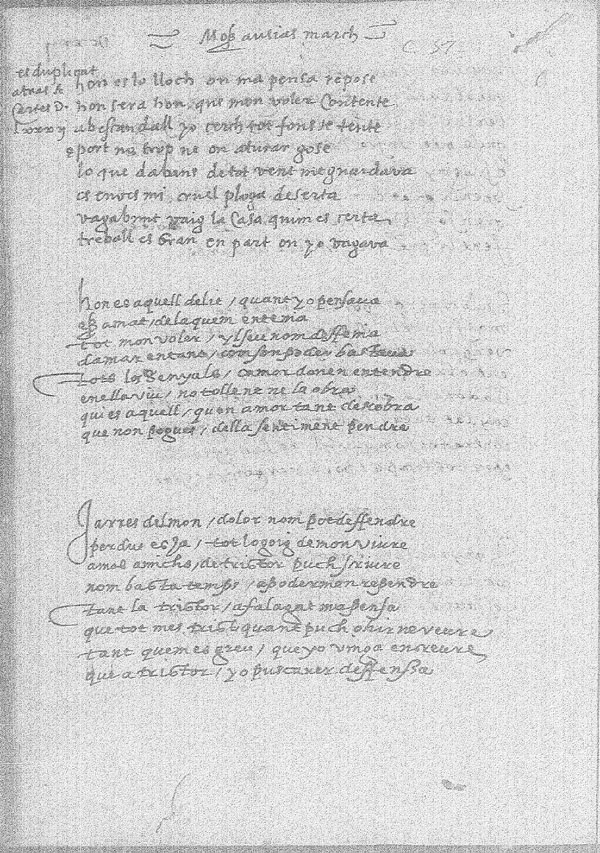 Moß ausias march
C. 57
es duplicat
atras A
Cartes D.
Lxxx y
hon es lo lloch on ma pensa repose
hon sera hon que mon voler Contente
ab escandall yo cerch tot fons te tente
e port no trop ne on aturar gose
lo que dabans de tot vent me guardava
es envers mi cruel plaga deserta
vagabunt vaig la Casa quim es certa
treball es Gran en part on yo vagava
hon es aquell delit / quant yo pensava
eß amat / dela quem entenia
tot mon voler / y lseu nom deffenia
damar en tant / com son poder bastava
tots los Senyals / camor donen entendre
en ella viu / no tollent ne la obra
qui es aquell / qu en amor tant descobra
que non pogues / della sentiment pendre
Ja rres del mon / dolor nom pot deffendre
perdut es Ja / tot lo goig de mon viure
a mos amichs / de tristor puch scriure
nom basta temps / a poder men rependre
tant la tristor / afalagat ma pensa
que tot mes trist quant puch ohir ne veure
tant quem es greu / que yo vinga en creure
que a tristor / yo pusca fer deffenssa